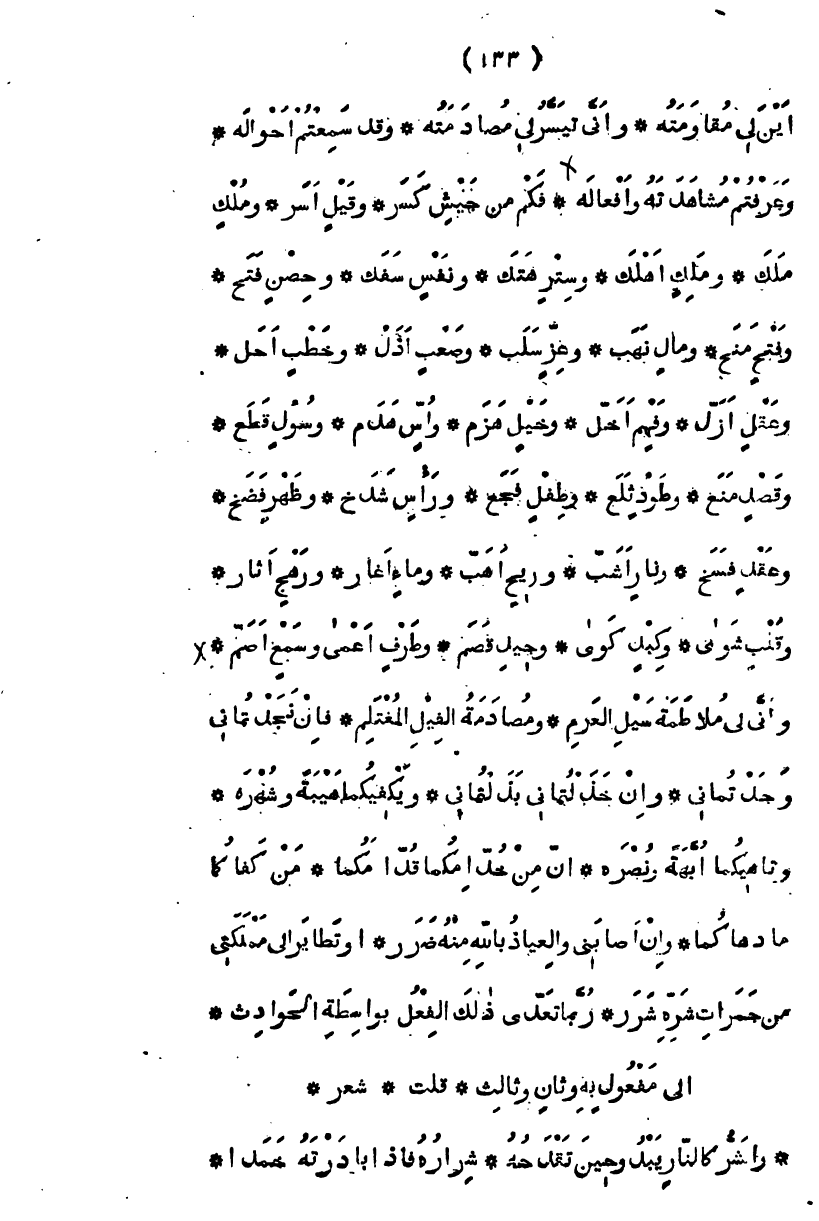 ( ١٣٣ )
اَيْنَ لِي مُقاوَمَتُه * وانَّى يَتَيَسَّرُ لِي مُصادَمَتُه * وقد سَمِعْتُم اَحْوالَه *
وعَرَفْتُمْ مُشاهَدَتَهُ واَفْعالَه * فَكَمْ من جَيْشٍ كَسَر * وقَيْلٍ اَسَر * ومُلْكٍ
مَلَكَ * ومَلِكٍ اَهْلَك * وسِتْرٍ هَتَك * ونَفْسٍ سَفَك * وحِصْنٍ فَتَح *
وفَتْحٍ مَنَح * ومالٍ نَهَب * وعِزٍّ سَلَب * وصَعْبٍ اَذَلّ * وخَطْبٍ اَحَل *
وعَقْلٍ اَزَلّ * وفَهْمٍ اَخَلّ * وخَيْلٍ هَزَم * واُسٍّ هَدَم * وسُؤْلٍ قَطَع *
وقَصْدٍ مَنَع * وطَوْدٍ قَلَع * وطِفْلٍ فَجَع * ورَأْسٍ شَدَخ * وظَهْرٍ فَضَخ *
وعَقْدٍ فَسَخ * ونارٍ اَشَبّ * وريحٍ اَهَبّ * وماءٍ اَغار * ورَهْجٍ اَثار *
وقَلْبٍ شَوَى * وكَبْدٍ كَوى * وجِيدٍ قَصَم * وطَرْفٍ اَعْمى وسَمْعٍ اَصَمّ *
وانَّى لى مُلاطَمَة سَيْلِ العَرِمِ * ومُصادَمَةُ الفِيْلِ المُغْتَلِم * فاِنْ نَجَدْتُمانِي
وَجَدْتُماني * واِنْ خَذَلْتُماني بَذَلْتُماني * ويَكْفِيْكُما هَيْبَةً وشُهْرَه *
وناهِيكُما اُبَّهَةً ونُصْرَه * انّ مِنْ خُدّامِكُما قُدّامَكُما * مَنْ كَفاكُما
ما دهاكُما * واِنْ اَصابَنِى والعِياذُ بالله مِنْهُ ضَرَر * او تَطايَر الى مَمْلَكَتِى
من جَمَراتِ شَرِّهِ شَرَر * رُبَّما تَعَدّى ذٰلكَ الفِعْلُ بواسِطَةِ الحَوادِث *
الى مَفْعُولٍ بِهِ وثانٍ وثالِث * قلت * شعر *
* والشَّرُّ كالنّارِ يَبْدُو حِينَ تَقْدَحُهُ * شِرارُهُ فاذا بادَرْتَهُ خَمَدا *